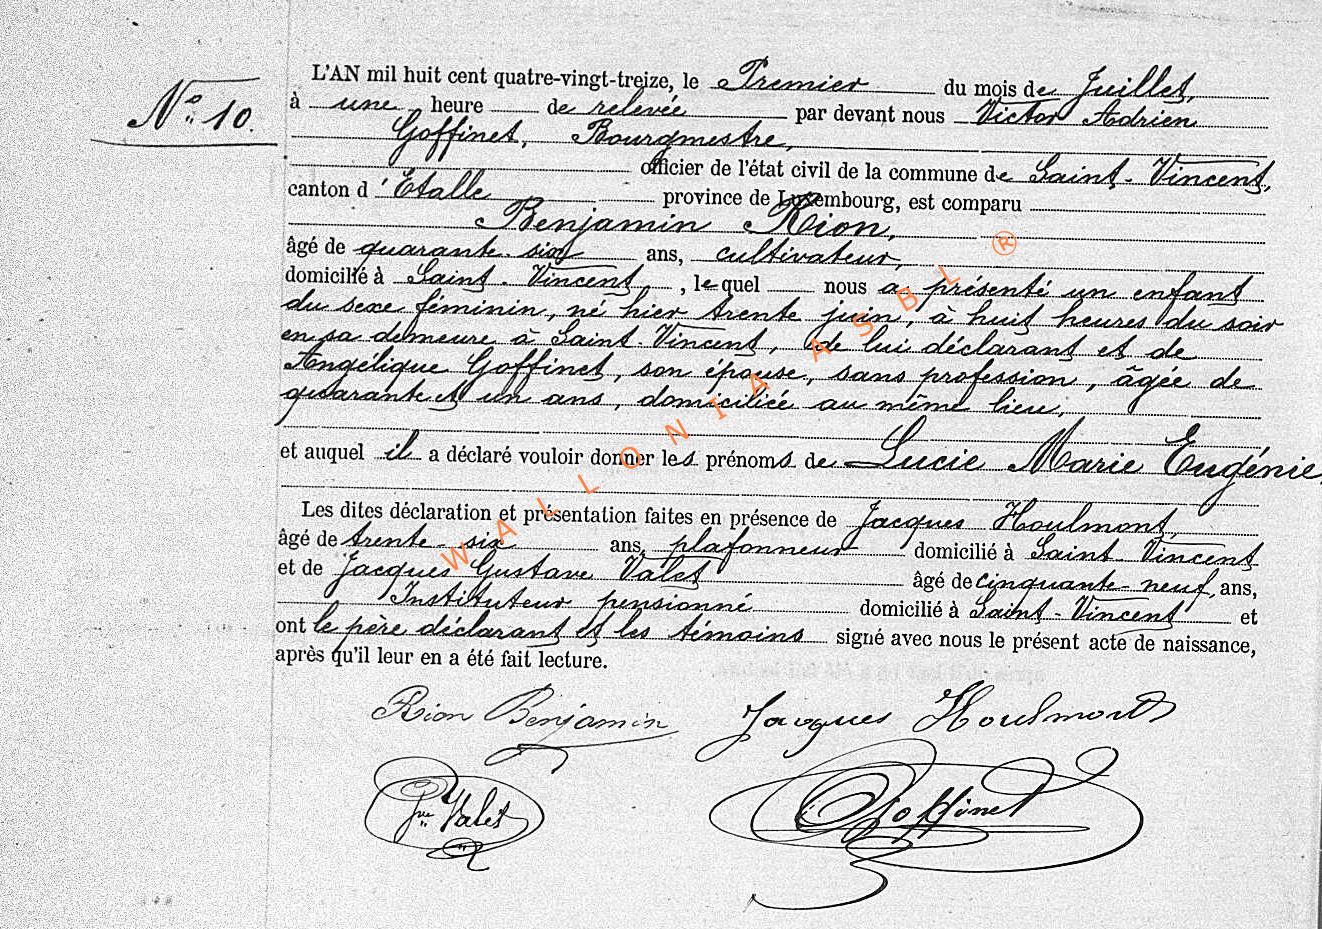 L'AN mil huit cent quatre-vingt-treize, le Premier du mois de Juillet,
N° 10.
à une heure de relevée par devant nous Victor Adrien
Goffinet, Bourgmestre,
officier de l'état civil de la commune de Saint-Vincent,
canton d'Etalle province de Luxembourg, est comparu
Benjamin Rion,
âgé de quarante-six ans, cultivateur,
domicilié à Saint-Vincent, lequel nous a présenté un enfant
du sexe féminin, né hier trente juin, à huit heures du soir
en sa demeure à Saint-Vincent, de lui déclarant et de
Angélique Goffinet, son épouse, sans profession, âgée de
quarante et un ans, domiciliée au même lieu,
et auquel il a déclaré vouloir donner les prénoms de Lucie Marie Eugénie,
Les dites déclaration et présentation faites en présence de Jacques Houlmont,
âgé de trente-six ans, plafonneur domicilié à Saint Vincent
et de Jacques Gustave Valet âgé de cinquante-neuf, ans,
Instituteur pensionné domicilié à Saint-Vincent et
ont le père déclarant et les témoins signé avec nous le présent acte de naissance,
après qu'il leur en a été fait lecture.
Rion Benjamin Jacques Houlmont
Valet Goffinet
WALLONIA ASBL ®